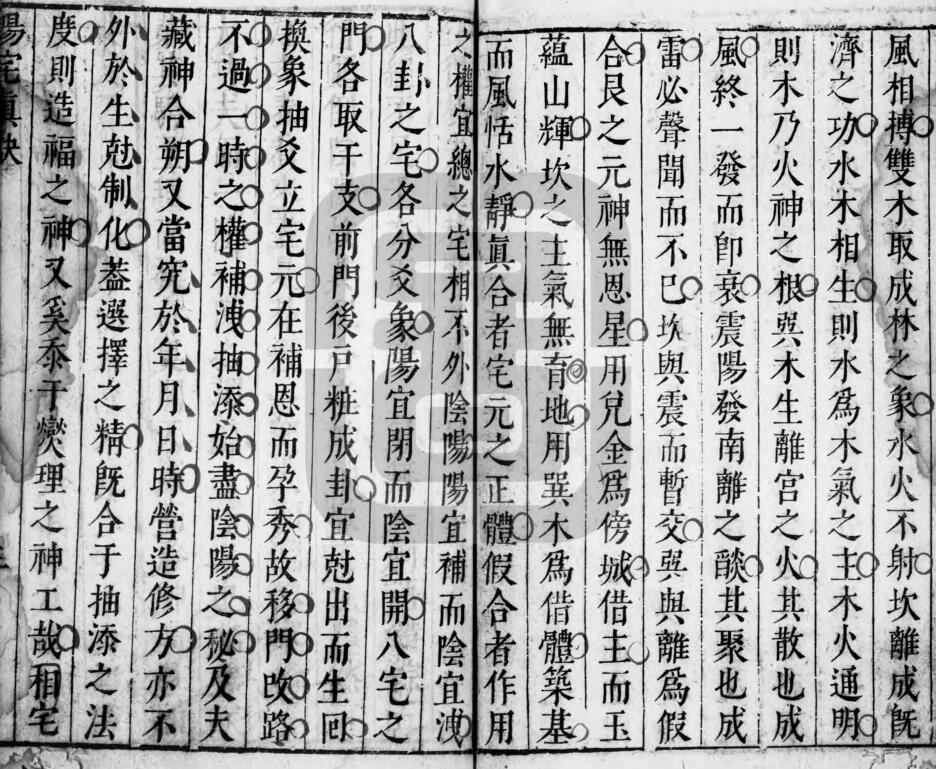 風相搏雙木取成林之象水火不射坎離成旣
濟之功水木相生則水爲木氣之主木火通明
則木乃火神之根巽木生離宮之火其散也成
風終一發而卽衰震陽發南離之燄其聚也成
雷必聲聞而不已坎與震而暫交巽與離爲假
合艮之元神無恩星用兌金爲傍城借主而玉
蘊山輝坎之主氣無育地用巽木爲借體築基
而風恬水靜眞合者宅元之正體假合者作用
之權宜總之宅相不外陰陽陽宜補而陰宜洩
八卦之宅各分爻象陽宜閉而陰宜開八宅之
門各取干支前門後戶粧成卦宜尅出而生囘
換象抽爻立宅元在補恩而孕秀故移門改路
不過一時之權補洩抽添始盡陰陽之秘及夫
藏神合朔又當究於年月日時營造修方亦不
外於生尅制化蓋選擇之精旣合于抽添之法
度則造福之神又奚忝于爕理之神工哉相宅
陽宅眞訣